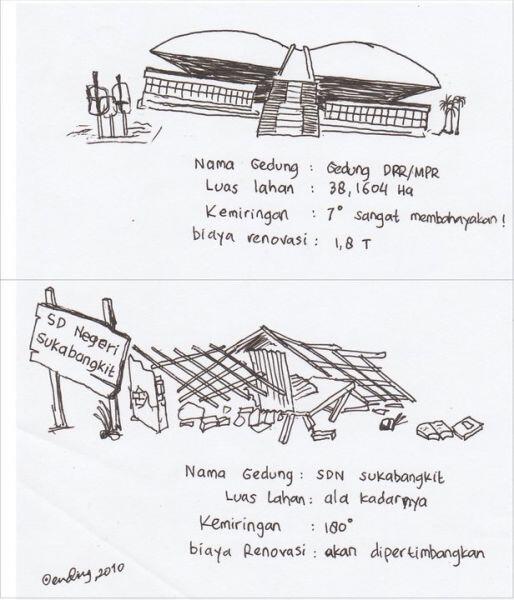 Nama Gedung : Gedung DPR/MPR
Luas lahan : 38,1604 Ha
Kemiringan : 7° sangat membahayakan!
biaya renovasi : 1,8 T
SD Negeri
Sukabangkit
Nama Gedung : SDN sukabangkit
Luas Lahan : ala kadarnya
Kemiringan : 180°
biaya Renovasi : akan dipertimbangkan